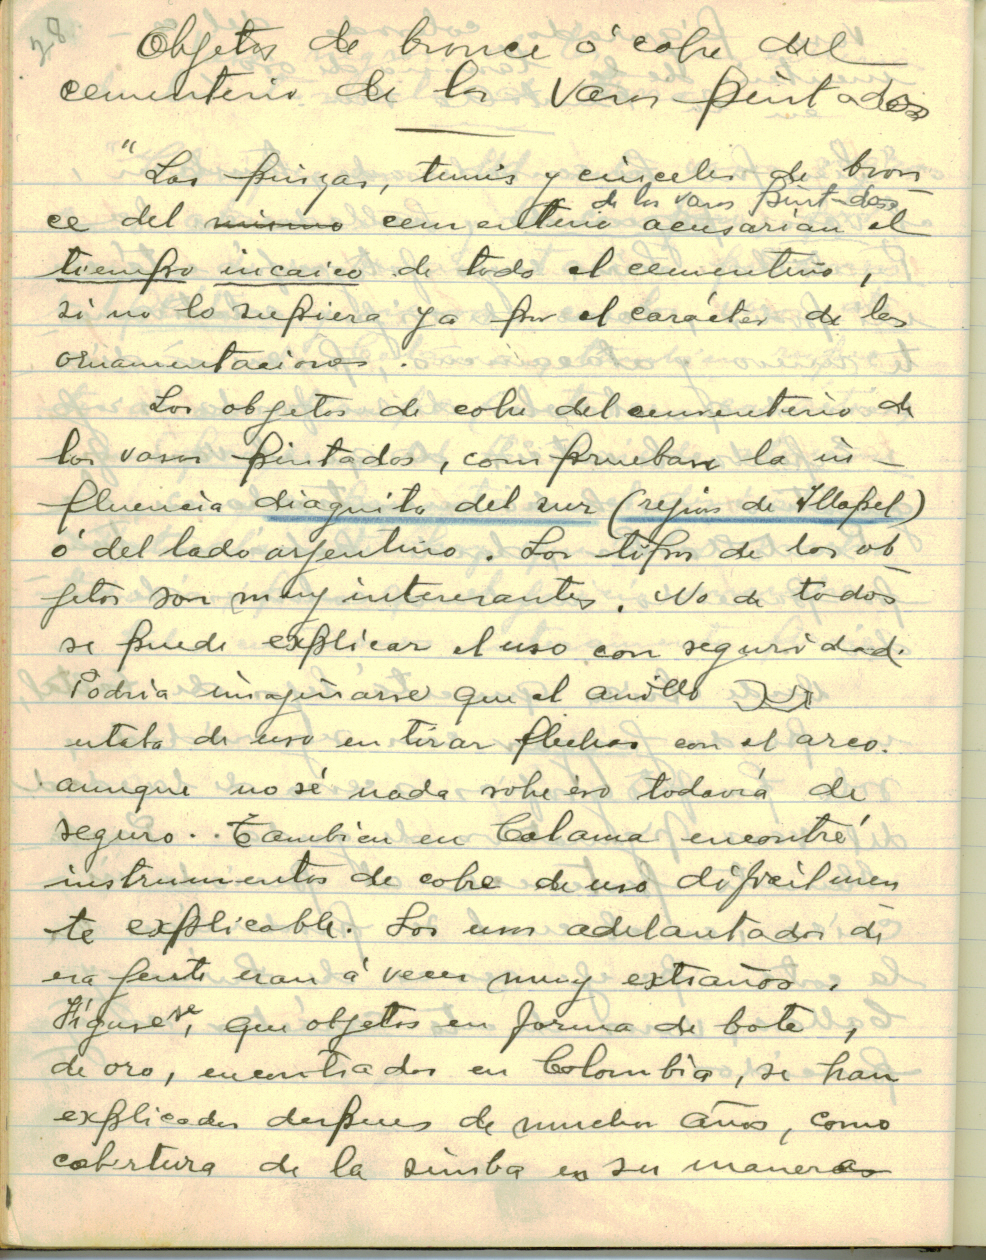 28
Objetos de bronce ó cobre del
cementerio de los Vasos pintados
"Las pinzas, tumis y cinceles de bron
de los vasos pintados
ce del mismo cementerio acusarían el
tiempo incaico de todo el cementerio,
si no lo supiera ya por el carácter de las
ornamentaciones.
Los objetos de cobre del cementerio de
los vasos pintados, comprueban la in-
fluencia diaguita del sur (rejion de Illapel)
ó del lado arjentino. Los tipos de los ob
jetos son muy interesantes. No de todos
se puede explicar el uso con seguridad.
Podria imajinarse que el anillo
de uso en tirar flechas con el arco.
aunque no sé nada sobre eso todavía de
seguro. Tambien en Calama encontré
instrumentos de cobre de uso dificilmen
te explicable. Los usos adelantados de
esa jente eran á veces muy extraños.
Figurese, que objetos en forma de bote,
de oro, encontrados en Colombia, se han
explicados despues de muchos años, como
cobertura de la simba en su manera